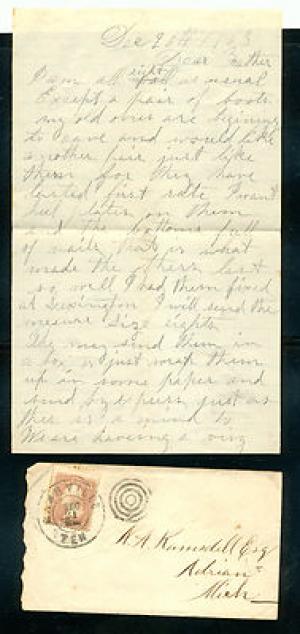 Dec 20th 1863
Dear Father
I am all right as usual
Except a pair of boots
my old ones are begining
to cave and would like
another pair just like
them for they have
lasted first rate I want
heel plates on them
and the bottoms full
of nails that is what
made the others last
so well I had them fixed
at Lexington I will send the
mesure Size eights
You may send them in
a box or just wrap them
up in some paper and
send by express just as
there is a mind to
We are haveing a very
TEN
R. A. Ramsdell Esq
Adrian
Mich